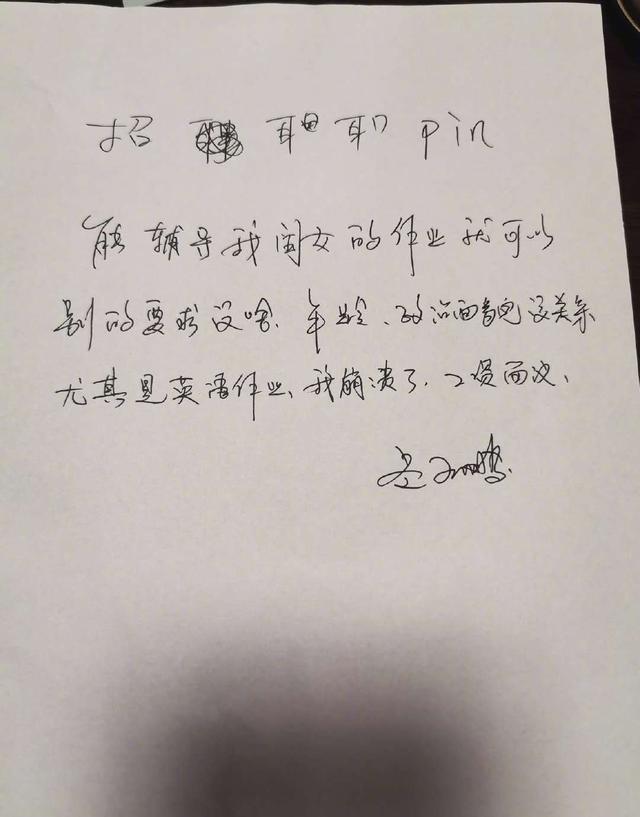 招 职 pin
能辅导我闺女的作业就可以
别的要求没啥、年龄、政治面貌没关系
尤其是英语作业、我崩溃了、工资面议、
岳云鹏